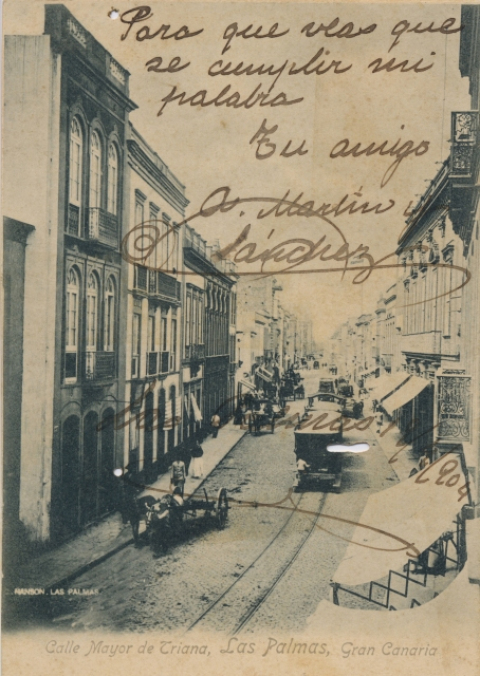 Para que veas que
se cumplir mi
palabra
Tu amigo
A. Martín y
Sánchez
Las Palmas
1904
RANSON. LAS PALMAS
Calle Mayor de Triana, Las Palmas, Gran Canaria